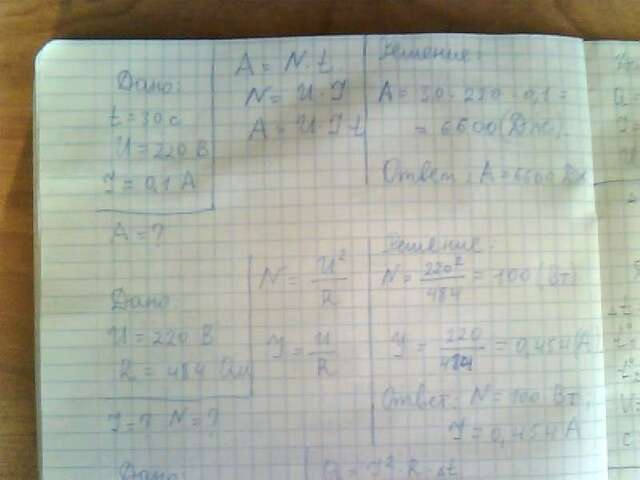 Дано:
t = 30 с
U = 220 В
I = 0,1 А
A = ?
A = N · t
N = U · I
A = U · I · t
Решение:
A = 30 · 220 · 0,1 =
= 6600 (Дж)
Ответ: A = 6600 Дж
Дано
U = 220 В
R = 484 Ом
I = ? N = ?
N = U²/R
I = U/R
Решение:
N = 220²/484 = 100 (Вт)
I = 220/484 = 0,454 (А)
Ответ: N = 100 Вт.
I = 0,454 А
Дано:
Q = I² · R · Δt